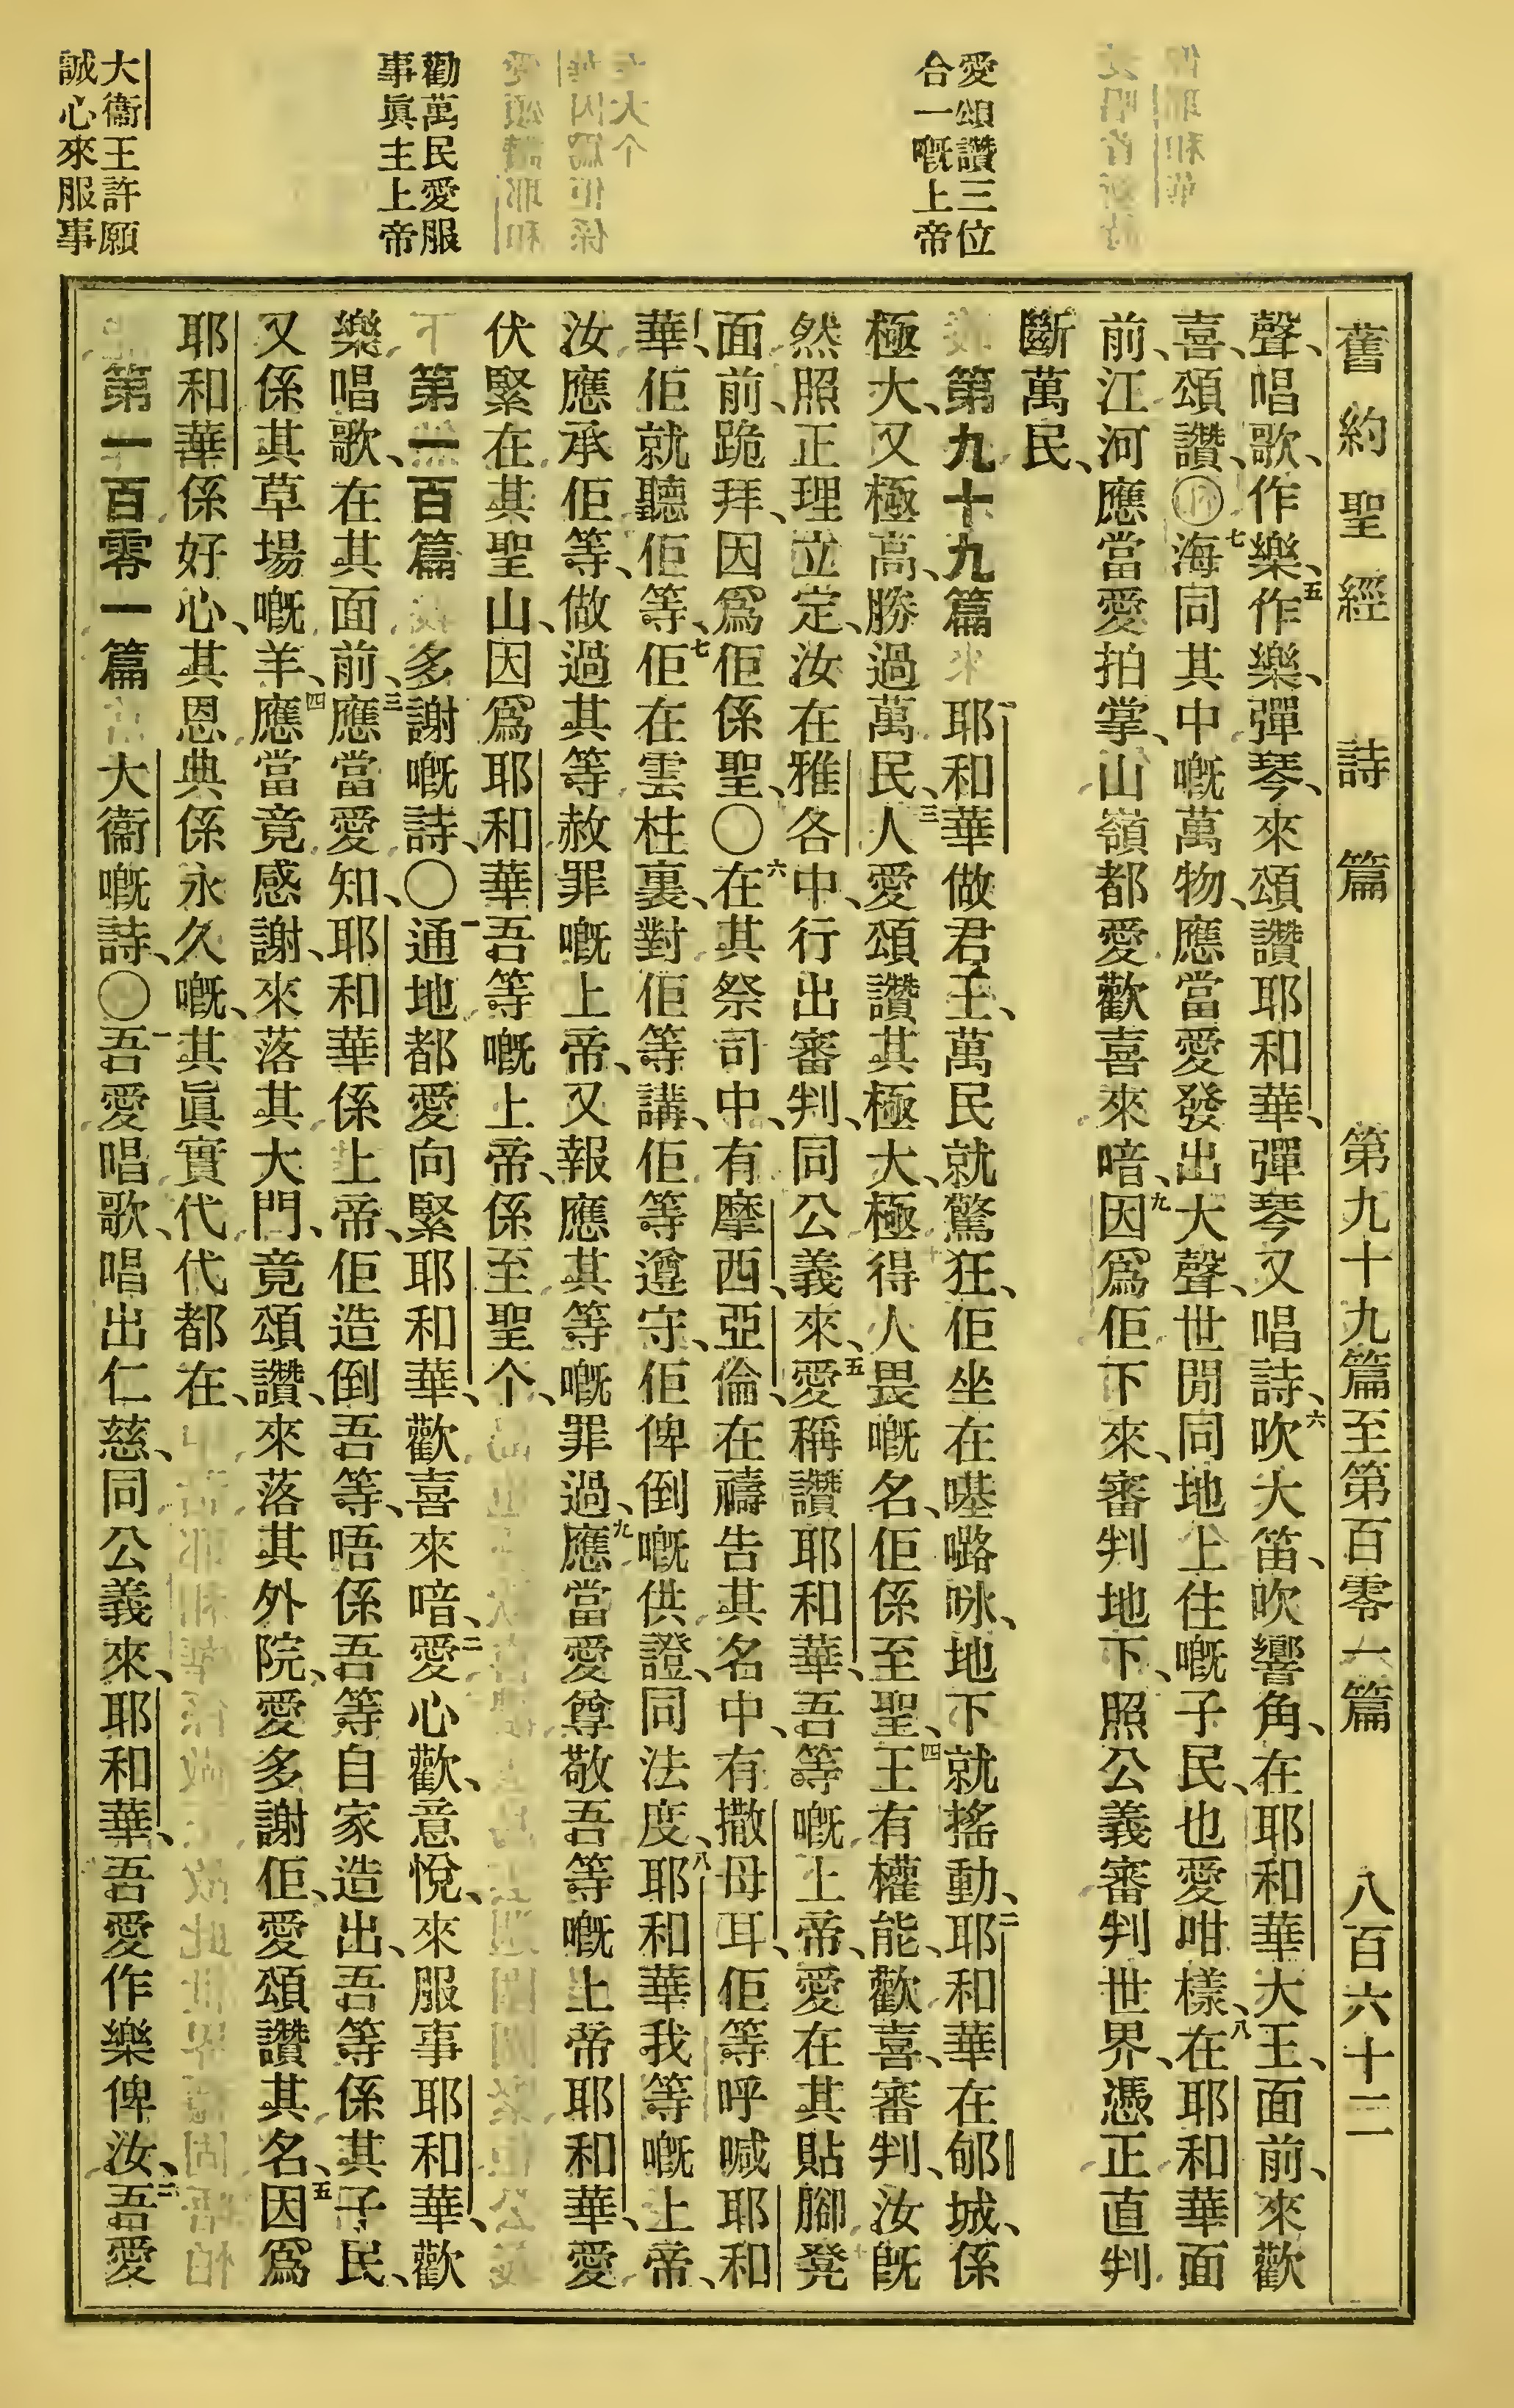 舊約聖經 詩篇 第九十九篇至第百零一篇 八百六十二
愛頌讚三位
合一嘅上帝
勸萬民愛服
事眞主上帝
大衞王許願
誠心來服事
聲、唱歌、作樂、五作樂、彈琴、來頌讚耶和華、彈琴又唱詩、六吹大笛、吹響角、在耶和華大王、面前、來歡
喜、頌讚、〇七海同其中嘅萬物、應當愛發出大聲、世閒同地上住嘅子民、也愛咁樣、八在耶和華面
前、江河應當愛拍掌、山嶺都愛歡喜來喑、九因爲佢下來、審判地下、照公義審判世界、憑正直判
斷萬民、
第九十九篇 一耶和華做君王、萬民就驚狂、佢坐在𠸄㗰咏、地下就搖動、二耶和華在郇城、係
極大、又極高、勝過萬民、三人愛頌讚其極大、極得人畏嘅名、佢係至聖、四王有權能、歡喜、審判、汝旣
然照正理立定、汝在雅各中、行出審判、同公義來、五愛稱讚耶和華、吾等嘅上帝、愛在其貼腳凳
面前、跪拜、因爲佢係聖、〇六在其祭司中、有摩西、亞倫、在禱告其名中、有撒母耳、佢等呼喊耶和
華、佢就聽佢等、七佢在雲柱裏、對佢等講、佢等遵守、佢俾倒嘅供證、同法度、八耶和華我等嘅上帝、
汝應承佢等、做過其等赦罪嘅上帝、又報應其等嘅罪過、九應當愛尊敬吾等嘅上帝耶和華、愛
伏緊在其聖山、因爲耶和華吾等嘅上帝、係至聖个、
第一百篇 多謝嘅詩、〇一通地都愛向緊耶和華、歡喜來喑、二愛心歡、意悅、來服事耶和華、歡
樂唱歌、在其面前、三應當愛知、耶和華係上帝、佢造倒吾等、唔係吾等自家造出、吾等係其子民、
又係其草場嘅羊、四應當竟感謝、來落其大門、竟頌讚、來落其外院、愛多謝佢、愛頌讚其名、五因爲
耶和華係好心、其恩典係永久嘅、其眞實代代都在、
第一百零一篇 大衞嘅詩、〇一吾愛唱歌、唱出仁慈、同公義來、耶和華、吾愛作樂俾汝、二吾愛